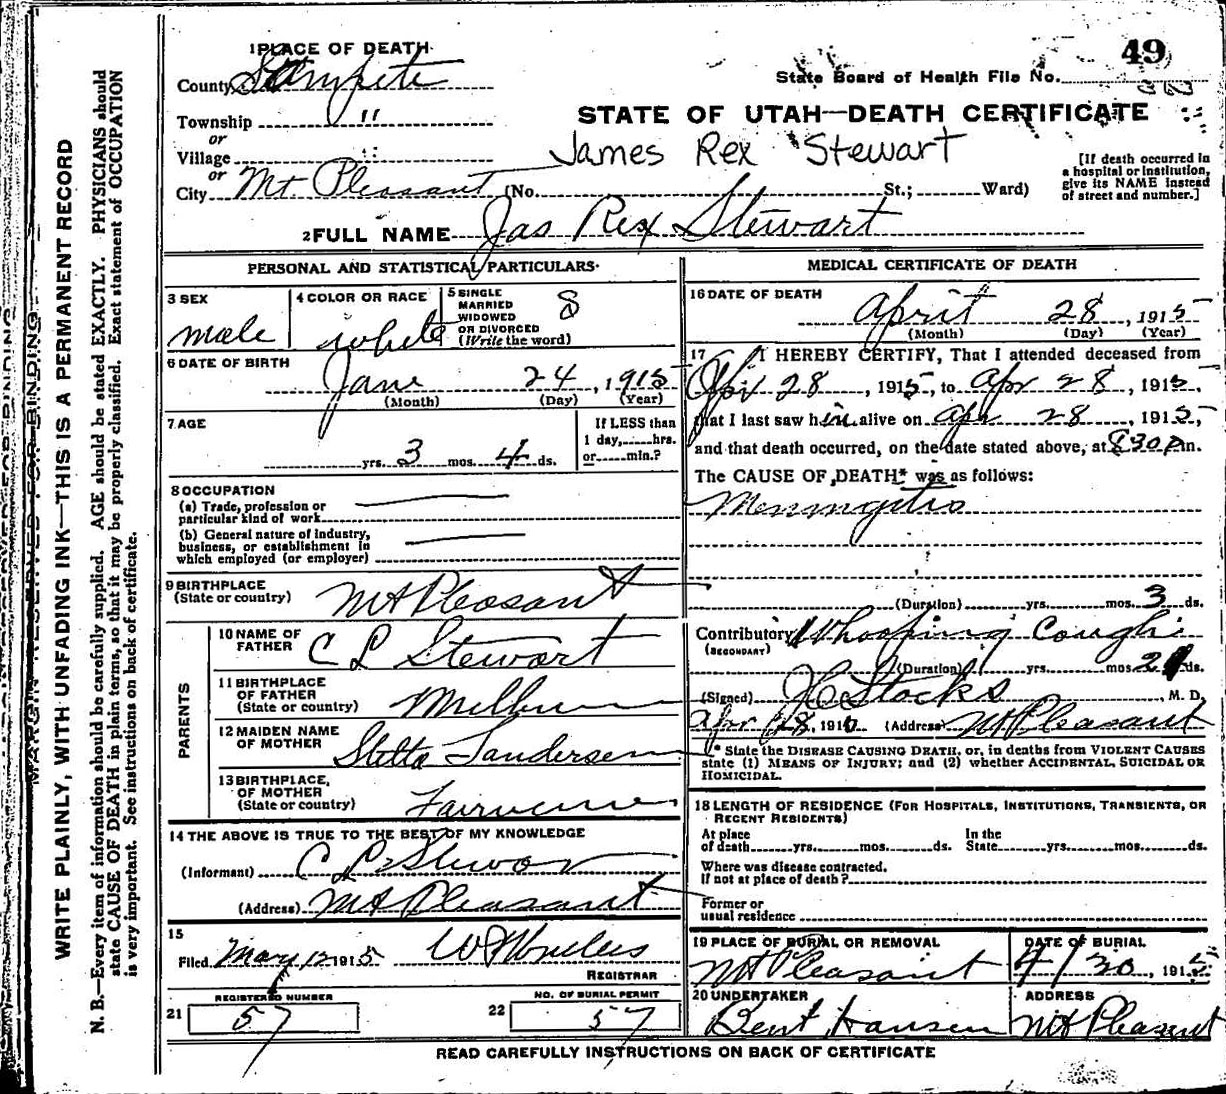 49
1 PLACE OF DEATH
County Sanpete
State Board of Health File No.
Township "
STATE OF UTAH—DEATH CERTIFICATE
or
Village "
James Rex Stewart
or
City Mt. Pleasant (No. St.; Ward)
[If death occurred in
a hospital or institution,
give its NAME instead
of street and number.]
2 FULL NAME Jas Rex Stewart
PERSONAL AND STATISTICAL PARTICULARS
3 SEX
male
4 COLOR OR RACE
white
5 SINGLE
MARRIED
WIDOWED
OR DIVORCED
(Write the word)
S
6 DATE OF BIRTH
Jany 24, 1915
(Month) (Day) (Year)
7 AGE
yrs. 3 mos. 4 ds.
If LESS than
1 day, hrs.
or min.?
8 OCCUPATION
(a) Trade, profession or
particular kind of work
(b) General nature of industry,
business, or establishment in
which employed (or employer)
9 BIRTHPLACE
(State or country) Mt Pleasant
PARENTS
10 NAME OF
FATHER C L Stewart
11 BIRTHPLACE
OF FATHER
(State or country) Milburn
12 MAIDEN NAME
OF MOTHER Stella Sandersen
13 BIRTHPLACE,
OF MOTHER
(State or country) Fairview
14 THE ABOVE IS TRUE TO THE BEST OF MY KNOWLEDGE
(Informant) C L Stewart
(Address) Mt Pleasant
15
Filed May 12 1915
REGISTRAR
REGISTERED NUMBER
21 57
NO. OF BURIAL PERMIT
22 57
MEDICAL CERTIFICATE OF DEATH
16 DATE OF DEATH
April 28, 1915
(Month) (Day) (Year)
17 I HEREBY CERTIFY, That I attended deceased from
Apr 28, 1915, to Apr 28, 1915,
that I last saw him alive on Apr 28, 1915,
and that death occurred, on the date stated above, at 830 P m.
The CAUSE OF DEATH* was as follows:
Meningitis
(Duration) yrs. mos. 3 ds.
Contributory Whooping Cough
(SECONDARY)
(Duration) yrs. mos. 21 ds.
(Signed) Stocks, M. D.
Apr 28, 191 (Address) Mt Pleasant
* State the DISEASE CAUSING DEATH, or, in deaths from VIOLENT CAUSES
state (1) MEANS OF INJURY; and (2) whether ACCIDENTAL, SUICIDAL OR
HOMICIDAL.
18 LENGTH OF RESIDENCE (FOR HOSPITALS, INSTITUTIONS, TRANSIENTS, OR
RECENT RESIDENTS)
At place
of death yrs. mos. ds.
In the
State yrs. mos. ds.
Where was disease contracted.
If not at place of death?
Former or
usual residence
19 PLACE OF BURIAL OR REMOVAL
Mt Pleasant
DATE OF BURIAL
4/30, 1915
20 UNDERTAKER
Bent Hansen
ADDRESS
Mt Pleasant
READ CAREFULLY INSTRUCTIONS ON BACK OF CERTIFICATE
MARGIN RESERVED FOR BINDING
WRITE PLAINLY, WITH UNFADING INK—THIS IS A PERMANENT RECORD
N. B.—Every item of information should be carefully supplied. AGE should be stated EXACTLY. PHYSICIANS should
state CAUSE OF DEATH in plain terms, so that it may be properly classified. Exact statement of OCCUPATION
is very important. See instructions on back of certificate.